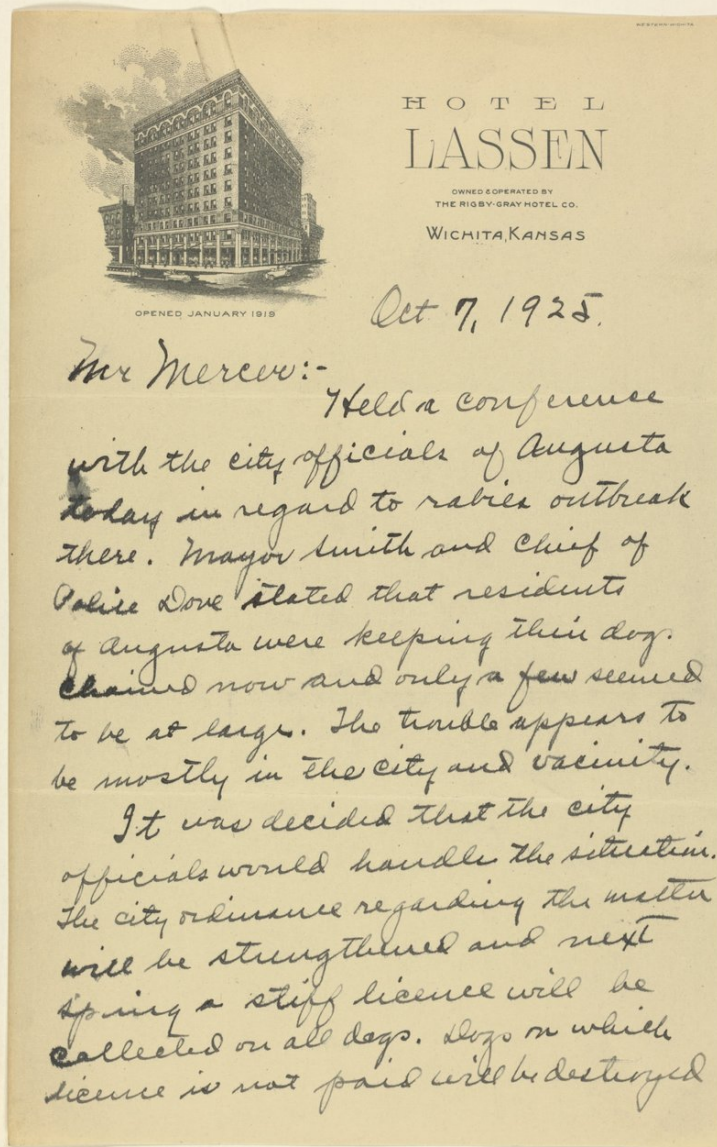 WESTERN-WICHITA
HOTEL
LASSEN
OWNED & OPERATED BY
THE RIGBY-GRAY HOTEL CO.
WICHITA, KANSAS
OPENED JANUARY 1919
Oct 7, 1925.
Mr Mercer:-
Held a conference
with the city officials of Augusta
today in regard to rabies outbreak
there. Mayor Smith and Chief of
Police Dove stated that residents
of Augusta were keeping their dog.
chained now and only a few seemed
to be at large. The trouble appears to
be mostly in the city and vacinity.
It was decided that the city
officials would handle the situation.
The city ordinance regarding the matter
will be strengthened and next
spring a stiff licence will be
collected on all dogs. Dogs on which
licence is not paid will be destroyed